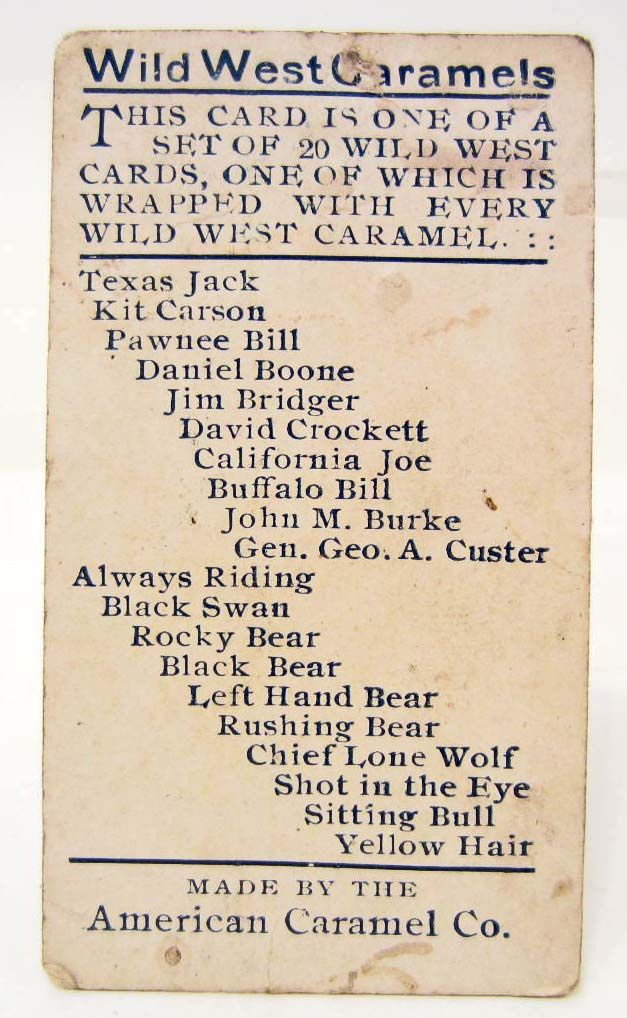 Wild West Caramels
THIS CARD IS ONE OF A
SET OF 20 WILD WEST
CARDS, ONE OF WHICH IS
WRAPPED WITH EVERY
WILD WEST CARAMEL. : :
Texas Jack
Kit Carson
Pawnee Bill
Daniel Boone
Jim Bridger
David Crockett
California Joe
Buffalo Bill
John M. Burke
Gen. Geo. A. Custer
Always Riding
Black Swan
Rocky Bear
Black Bear
Left Hand Bear
Rushing Bear
Chief Lone Wolf
Shot in the Eye
Sitting Bull
Yellow Hair
MADE BY THE
American Caramel Co.